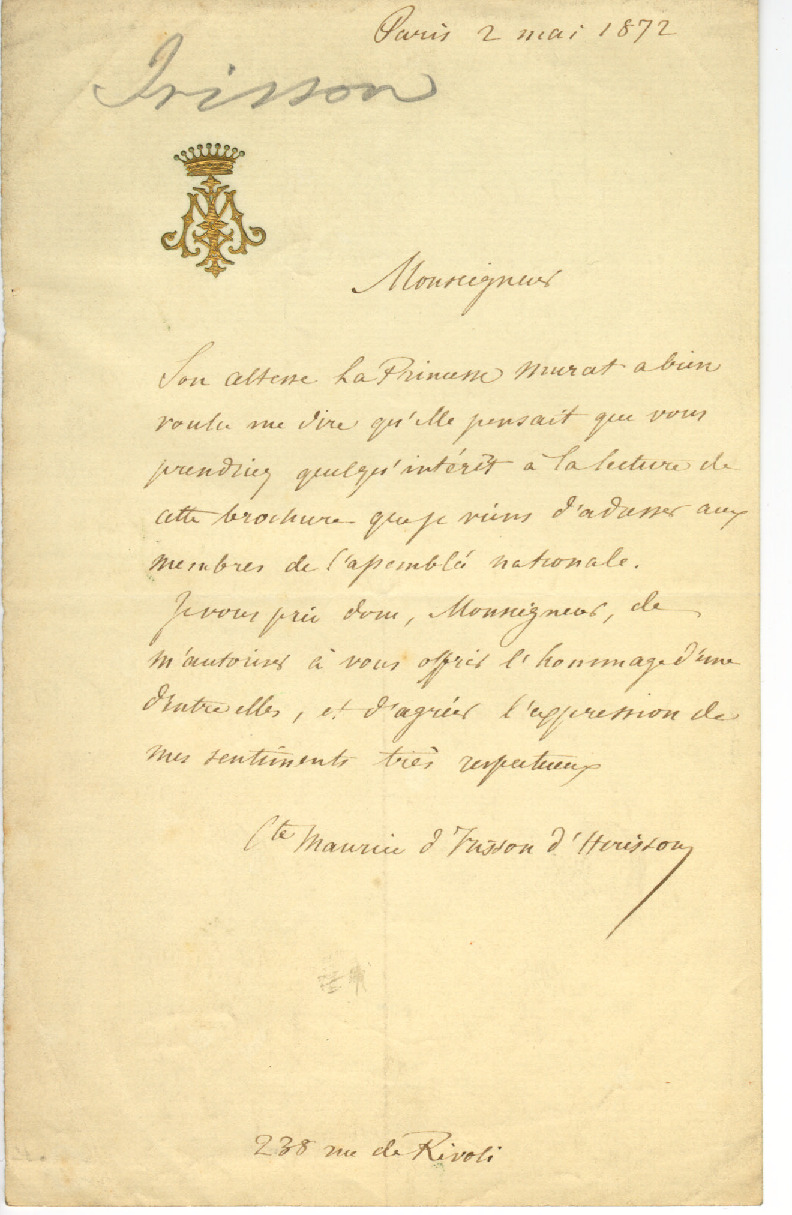 Paris 2 mai 1872
Irisson
Monseigneur
Son altesse La Princesse Murat a bien
voulu me dire qu'elle pensait que vous
prendriez quelqu'intérêt à la lecture de
cette brochure que je viens d'adresser aux
membres de l'assemblée nationale.
Je vous prie donc, Monseigneur, de
m'autoriser à vous offrir l'hommage d'une
d'entre elles, et d'agréer l'expression de
mes sentiments très respectueux
Cte Maurice d'Irisson d'Herisson
238 rue de Rivoli